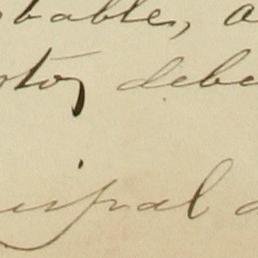 bable, a
tos debe
cipal d